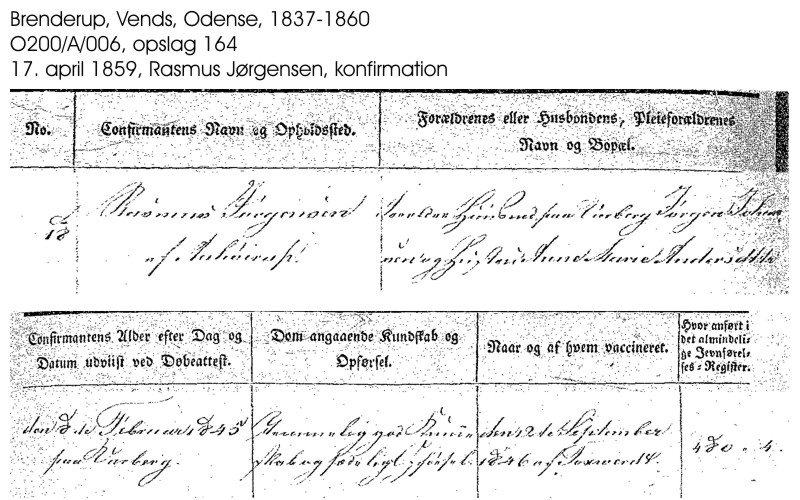 Brenderup, Vends, Odense, 1837-1860
O200/A/006, opslag 164
17. april 1859, Rasmus Jørgensen, konfirmation
No.
Confirmantens Navn og Opholdssted.
Forældrenes eller Husbondens, Pleieforældrenes
Navn og Bopæl.
18
Rasmus Jørgensen
af
Forældre Huusmd paa Varberg Jørgen Johan
og Hustru Anne Marie Andersdtte
Confirmantens Alder efter Dag og
Datum udviist ved Døbeattest.
Dom angaaende Kundskab og
Opførsel.
Naar og af hvem vaccineret.
Hvor anført i
det almindeli-
ge Jevnførel-
ses-Register.
den 8de Februar 1845
paa Varberg.
Temmelig god Kund-
skab og sædeligt Forhold.
den 12te September
1846 af
480 - 4.